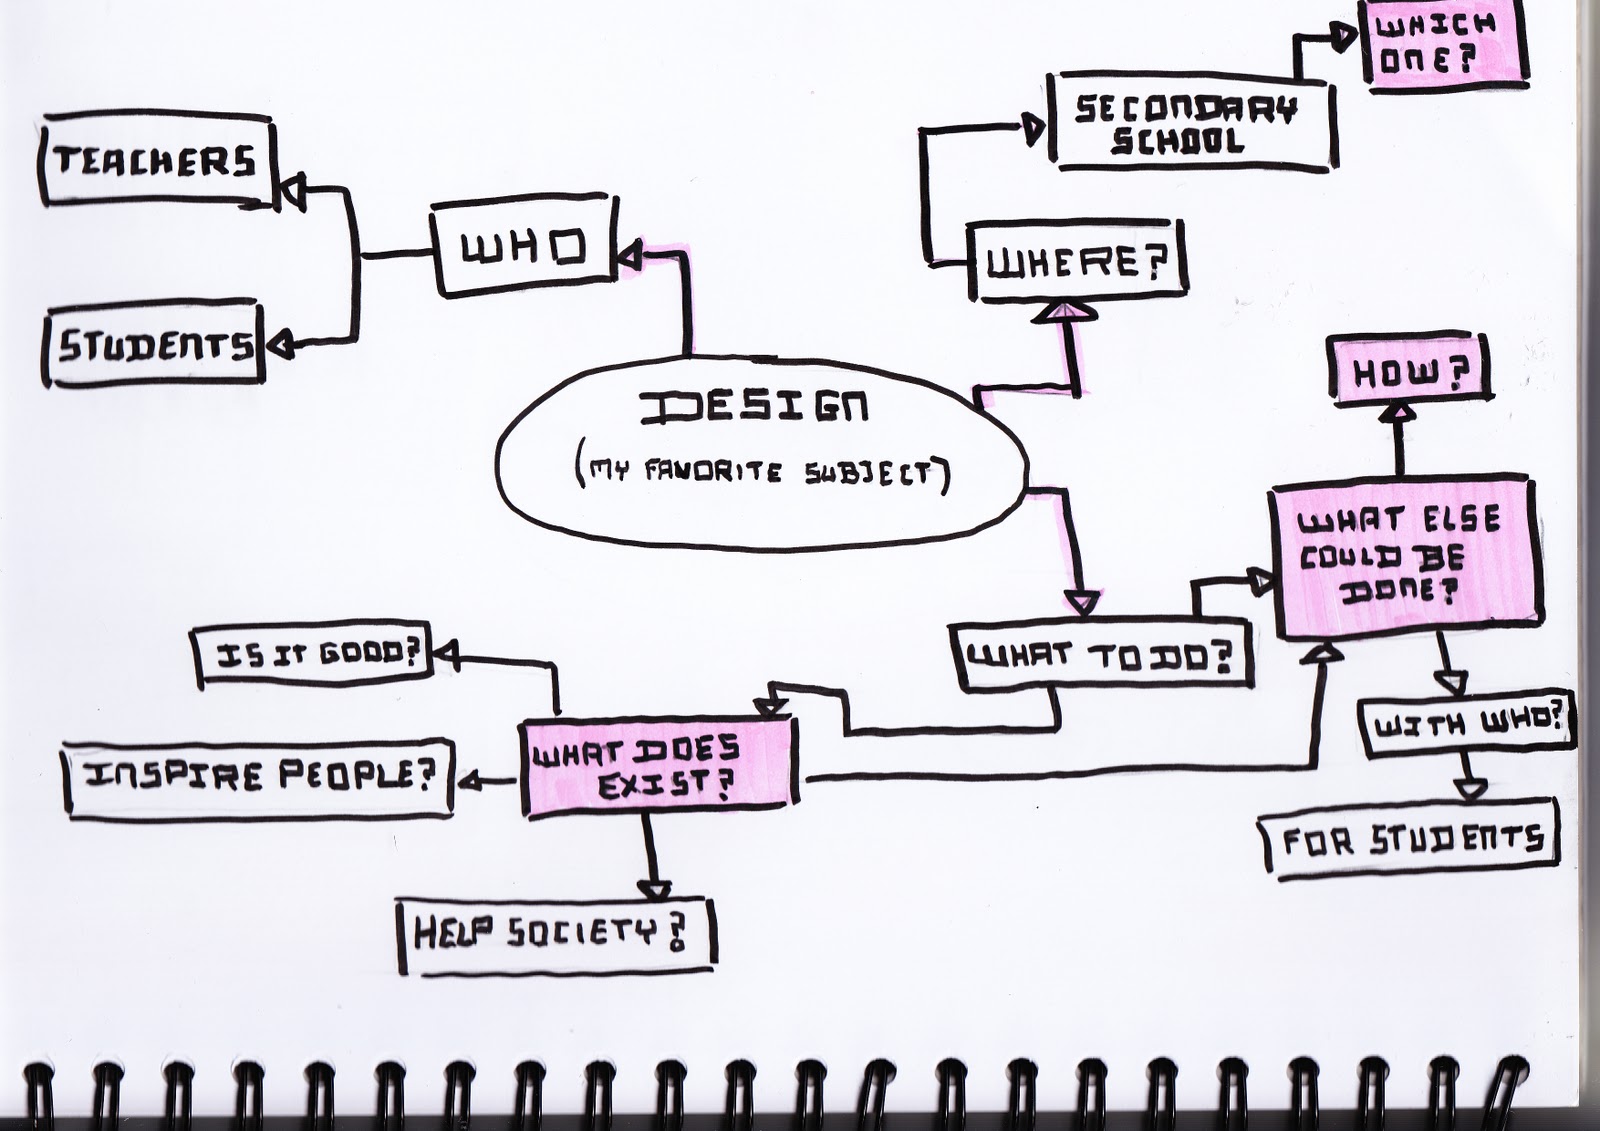 WHICH
ONE?
SECONDARY
SCHOOL
TEACHERS
WHO
WHERE?
STUDENTS
HOW?
DESIGN
(MY FAVORITE SUBJECT)
WHAT ELSE
COULD BE
DONE?
IS IT GOOD?
WHAT TO DO?
WITH WHO?
WHAT DOES
EXIST?
INSPIRE PEOPLE?
FOR STUDENTS
HELP SOCIETY?